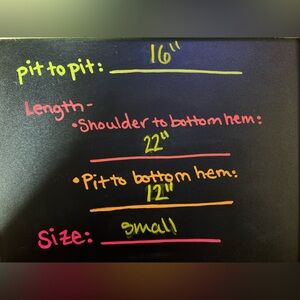 16"
pit to pit:
Length-
•Shoulder to bottom hem:
22"
•Pit to bottom hem:
12"
Size: small